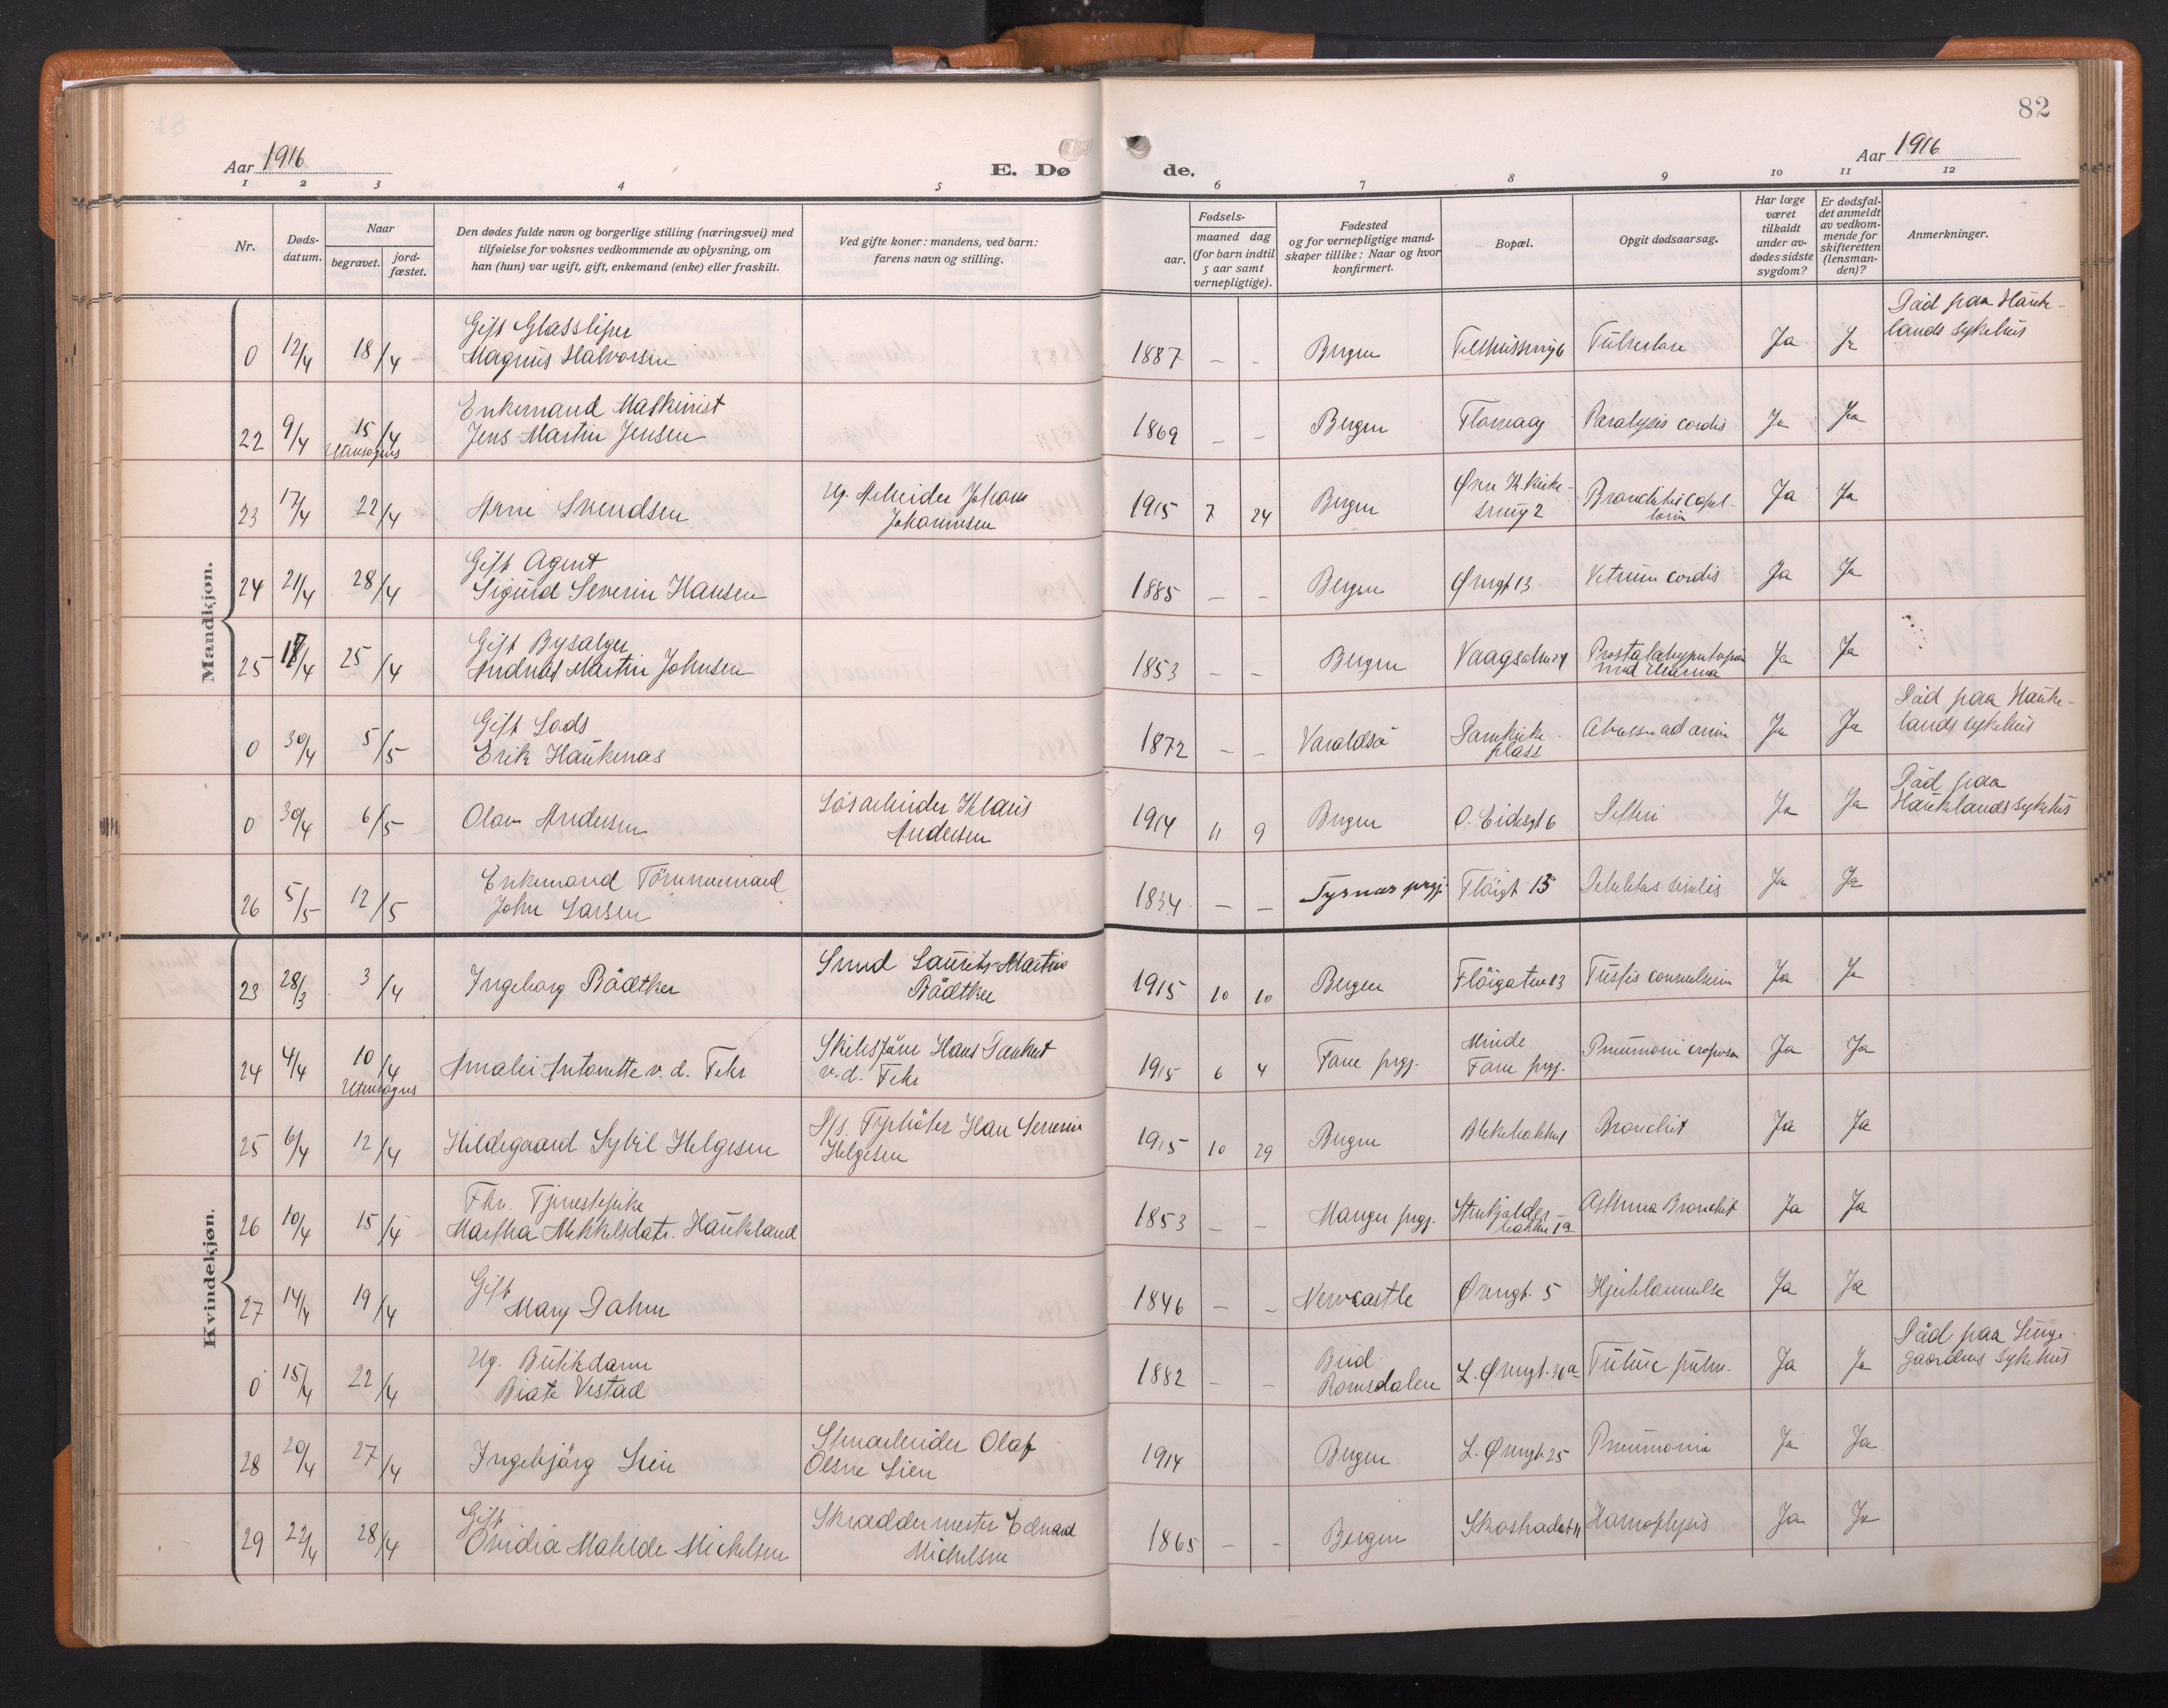 82
Aar 1916
E. Dø
de.
Aar 1916
1 2 3 4 5 6 7 8 9 10 11 12
Nr.
Døds-
datum.
Naar
begravet.
jord-
fæstet.
Den dødes fulde navn og borgerlige stilling (næringsvei) med
tilføielse for voksnes vedkommende av oplysning, om
han (hun) var ugift, gift, enkemand (enke) eller fraskilt.
Ved gifte koner: mandens, ved barn:
farens navn og stilling.
Fødsels-
aar.
maaned dag
(for barn indtil
5 aar samt
vernepligtige).
Fødested
og for vernepligtige mand-
skaper tillike: Naar og hvor
konfirmert.
Bopæl.
Opgit dødsaarsag.
Har læge
været
tilkaldt
under av-
dødes sidste
sygdom?
Er dødsfal-
det anmeldt
av vedkom-
mende for
skifteretten
(lensman-
den)?
Anmerkninger.
Mandkjøn.
Gift Glassliper
0 12/4 18/4 Magnus Halvorsen 1887 - - Bergen Ja Ja
Død paa Hauke-
lands sykehus
Enkemand Maskinist
22 9/4 15/4 Jens Martin Jensen 1869 - - Bergen Paralysis cordis Ja Ja
Utensogns
23 17/4 22/4 Arne Svendsen
Ug. Arbeider Johan
Johannesen
1915 7 24 Bergen Ja Ja
Gift Agent
24 21/4 28/4 Sigurd Severin Hansen 1885 - - Bergen Øvregt 13 Vitium cordis Ja Ja
Gift Bysælger
25 18/4 25/4 Andreas Martin Johnsen 1853 - - Bergen Ja Ja
Gift Lods
0 30/4 5/5 Erik Haukenæs 1872 - - Varaldsö
Domkirke-
plass
Ja Ja
Död paa Hauke-
lands sykehus
0 30/4 6/5 Olav Andersen
Lösarbeider Klaus
Andersen
1914 11 9 Bergen Difteri Ja Ja
Död paa
Hauklands sykehus
Enkemand Tömmermand
26 5/5 12/5 John Larsen 1834 - - Tysnæs prgj. Flöigt 15 Debilitas senilis Ja Ja
Kvindekjøn.
23 28/3 3/4 Ingeborg Bödtker
Smed Laurits Martin
Bödtker
1915 10 10 Bergen Flöigaten 13 Ja Ja
24 4/4 10/4 Amalie Antonette v. d. Fehr
Utensogns
Skibsförer Hans Tankert
v. d. Fehr
1915 6 4 Fane prgj.
Minde
Fane prgj.
Pneumoni croposa Ja Ja
25 6/4 12/4 Hildegaard Sybil Helgesen
D/s. Fyrböter Hans Severin
Helgesen
1915 10 29 Bergen Blekebakken Bronchit Ja Ja
Fhv. Tjenestepike
26 10/4 15/4 Martha Mikkelsdatr. Haukeland 1853 - - Manger prgj. Asthma Bronchit Ja Ja
Gift
27 14/4 19/4 Mary Dahm 1846 - - Newcastle Øvregt. 5 Hjertelammelse Ja Ja
Ug. Butikdame
0 15/4 22/4 Beate Vestad 1882 - -
Bud
Romsdalen
L. Øvregt. 36a Tuberc. pulm. Ja Ja
Död paa Lunge-
gaardens sykehus
28 20/4 27/4 Ingebjörg Lien
Stenarbeider Olaf
Olsen Lien
1914 Bergen L. Øvregt. 25 Pneumonia Ja Ja
Gift
29 22/4 28/4 Ovidia Matilde Michelsen
Skræddermester Edvard
Michelsen
1865 - - Bergen Hæmoptysis Ja Ja